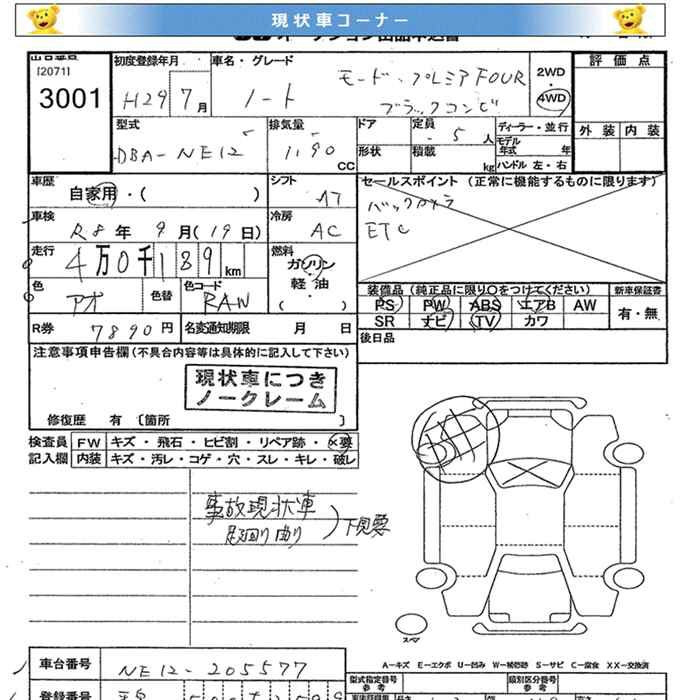 現状車コーナー
出品番号
[2071]
3001
初度登録年月
H29 7月
車名・グレード
ノート
モード・プレミアFOUR
ブラックコンビ
2WD
4WD
評価点
外装 内装
型式
DBA-NE12
排気量
1190
CC
ドア
形状
定員
5人
積載
kg
ディーラー・並行
モデル年式 年
ハンドル 左・右
車歴
自家用・( )
シフト
AT
セールスポイント (正常に機能するものに限ります)
バックカメラ
ETC
車検
R8年 9月(19日)
冷房
AC
走行
4万0千189km
燃料
ガソリン
軽・油
( )
色
アオ
色替
色コード
RAW
装備品 (純正品に限り○をつけてください)
新車保証書
PS PW ABS エアB AW
SR ナビ TV カワ
有・無
R券
7890円
名変通知期限 月 日
後日品
注意事項申告欄(不具合内容等は具体的に記入して下さい)
現状車につき
ノークレーム
修復歴 有 〔箇所 〕
検査員 FW キズ・飛石・ヒビ割・リペア跡・×要
記入欄 内装 キズ・汚レ・コゲ・穴・スレ・キレ・破レ
事故現状車
足回り曲り
下見要
スペア
A-キズ E-エクボ U-凹み W-補修跡 S-サビ C-腐食 XX-交換済
車台番号
NE12-205577
型式指定番号
参考
類別区分番号
参考
登録番号